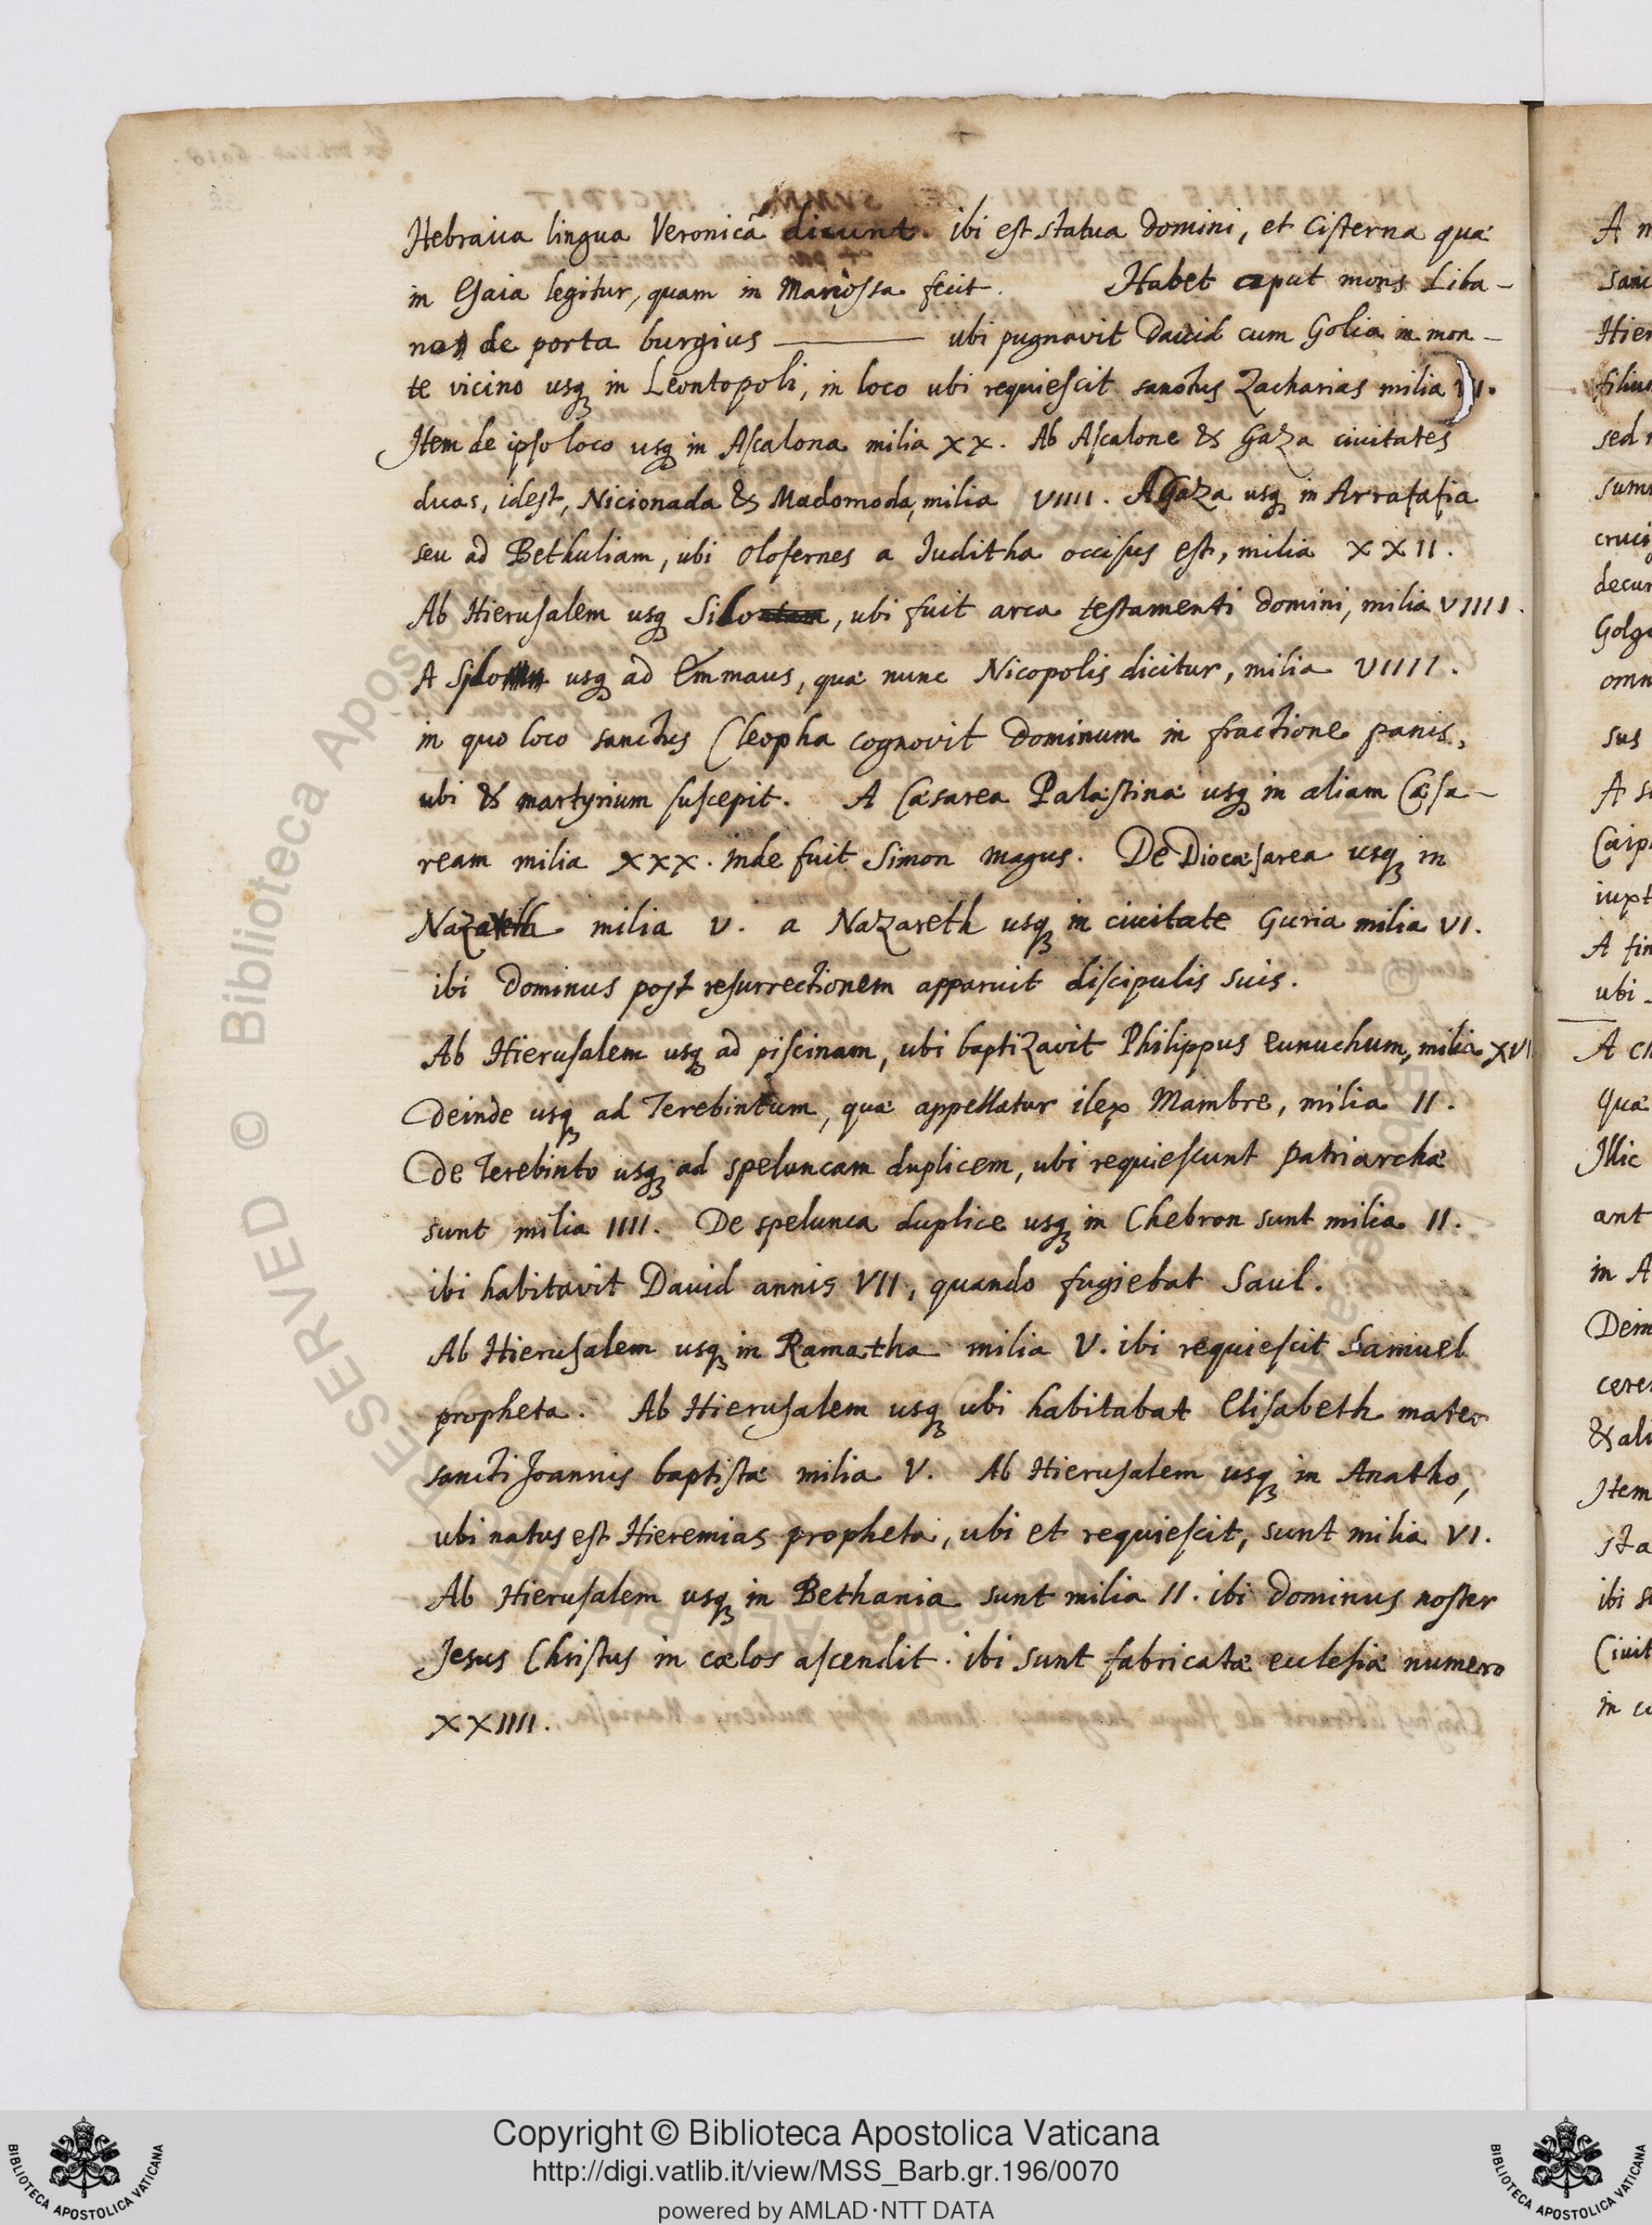 Hebraica lingua Veronicã dicunt. ibi est statua Domini, et cisterna quæ
in Esaia legitur, quam in Mariossa fecit. Habet caput mons Liba-
de porta burgius ——— ubi pugnavit David cum Golia in mon-
te vicino usq in Leontopoli, in loco ubi requiescit sanctus Zacharias milia
Item de ipso loco usq in Ascalona milia XX. Ab Ascalone & Gaza civitates
duas, idest, Nicionada & Madomoda, milia VIIII. A Gaza usq in Arrafafia
seu ad Bethuliam, ubi Olofernes a Iuditha occisus est, milia XXII.
Ab Hierusalem usq Silo, ubi fuit arca testamenti Domini, milia VIIII.
A Silo usq ad Emmaus, quæ nunc Nicopolis dicitur, milia VIIII.
in quo loco sanctus Cleopha cognovit Dominum in fractione panis,
ubi & martyrium suscepit. A Cæsarea Palæstinæ usq in aliam Cæsa-
ream milia XXX. inde fuit Simon magus. De Diocæsarea usq in
Nazareth milia V. a Nazareth usq in civitate Guria milia VI.
ibi Dominus post resurrectionem apparuit discipulis suis.
Ab Hierusalem usq ad piscinam, ubi baptizavit Philippus eunuchum, milia XVI
Deinde usq ad Terebintum, quæ appellatur ilex Mambre, milia II.
De Terebinto usq ad speluncam duplicem, ubi requiescunt patriarchæ
sunt milia IIII. De spelunca duplice usq in Chebron sunt milia II.
ibi habitavit David annis VII, quando fugiebat Saul.
Ab Hierusalem usq in Ramatha milia V. ibi requiescit Samuel
propheta. Ab Hierusalem usq ubi habitabat Elisabeth mater
sancti Joannis baptistæ milia V. Ab Hierusalem usq in Anatho,
ubi natus est Hieremias propheta, ubi et requiescit, sunt milia VI.
Ab Hierusalem usq in Bethania sunt milia II. ibi Dominus noster
Jesus Christus in cælos ascendit. ibi sunt fabricatæ ecclesiæ numero
XXIIII.
Copyright © Biblioteca Apostolica Vaticana
http://digi.vatlib.it/view/MSS_Barb.gr.196/0070
powered by AMLAD·NTT DATA
BIBLIOTECA APOSTOLICA VATICANA
BIBLIOTECA APOSTOLICA VATICANA